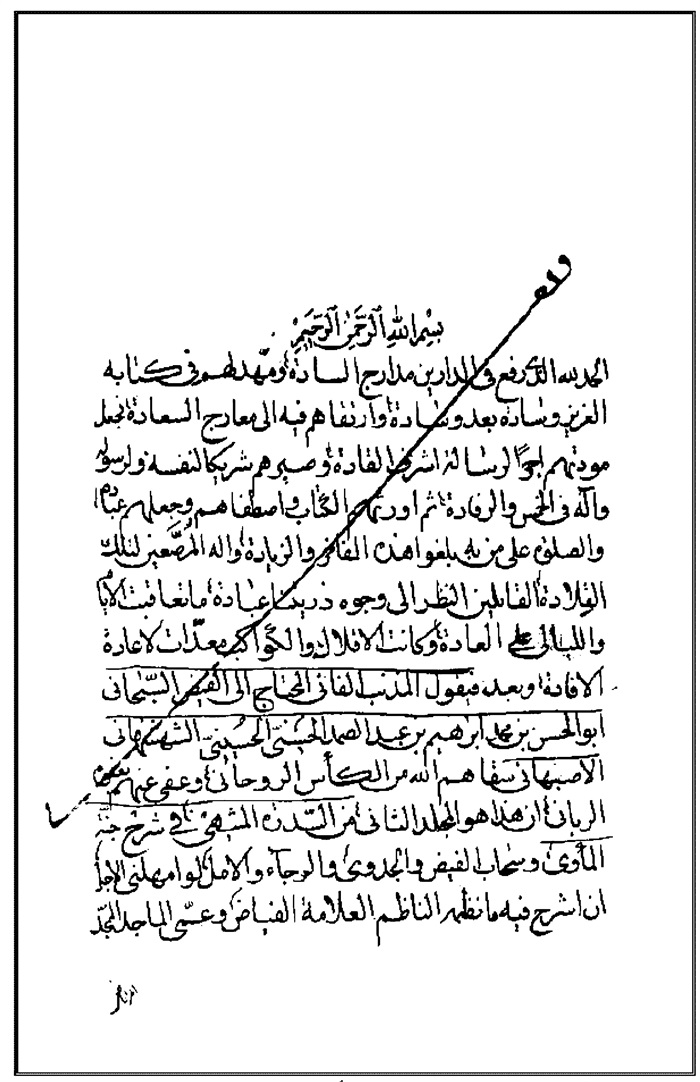 بسم الله الرحمن الرحيم
الحمد لله الذي رفع في الدارين مدارج السادة ومهد لهم في كتابه
العزيز وسادة بعد وسادة وارتقاهم فيه الى معارج السعادة فجعل
مودتهم اجر الرسالة اشرف القادة وصيرهم شريكا لنفسه ولرسوله
وآله في الخمس والرفادة ثم اورثهم الكتاب واصطفاهم وجعلهم عباده
والصلوة على من به بلغوا هذه المفاخر والزيادة واله المرصعين لتلك
القلادة القائلين النظر الى وجوه ذريتنا عبادة ما تعاقبت الايام
والليالى على العادة وكانت الافلاك والكواكب معدات لاعادة
الافادة وبعد فيقول المذنب الفانى المحتاج الى الفيض السبحانى
ابو الحسن بن محمد ابراهيم بن عبد الصمد الحسنى الحسينى الشهشهانى
الاصبهانى سقاهم الله من الكأس الروحانى وعفى عنهم
الربانى ان هذا هو المجلد الثانى من السدرة المنتهى في شرح جنة
المأوى وسحاب الفيض والجدوى والرجاء والامل لو امهلنى الاجل
ان اشرح فيه ما نظمه الناظم العلامة الفياض وعمى الماجد المجد